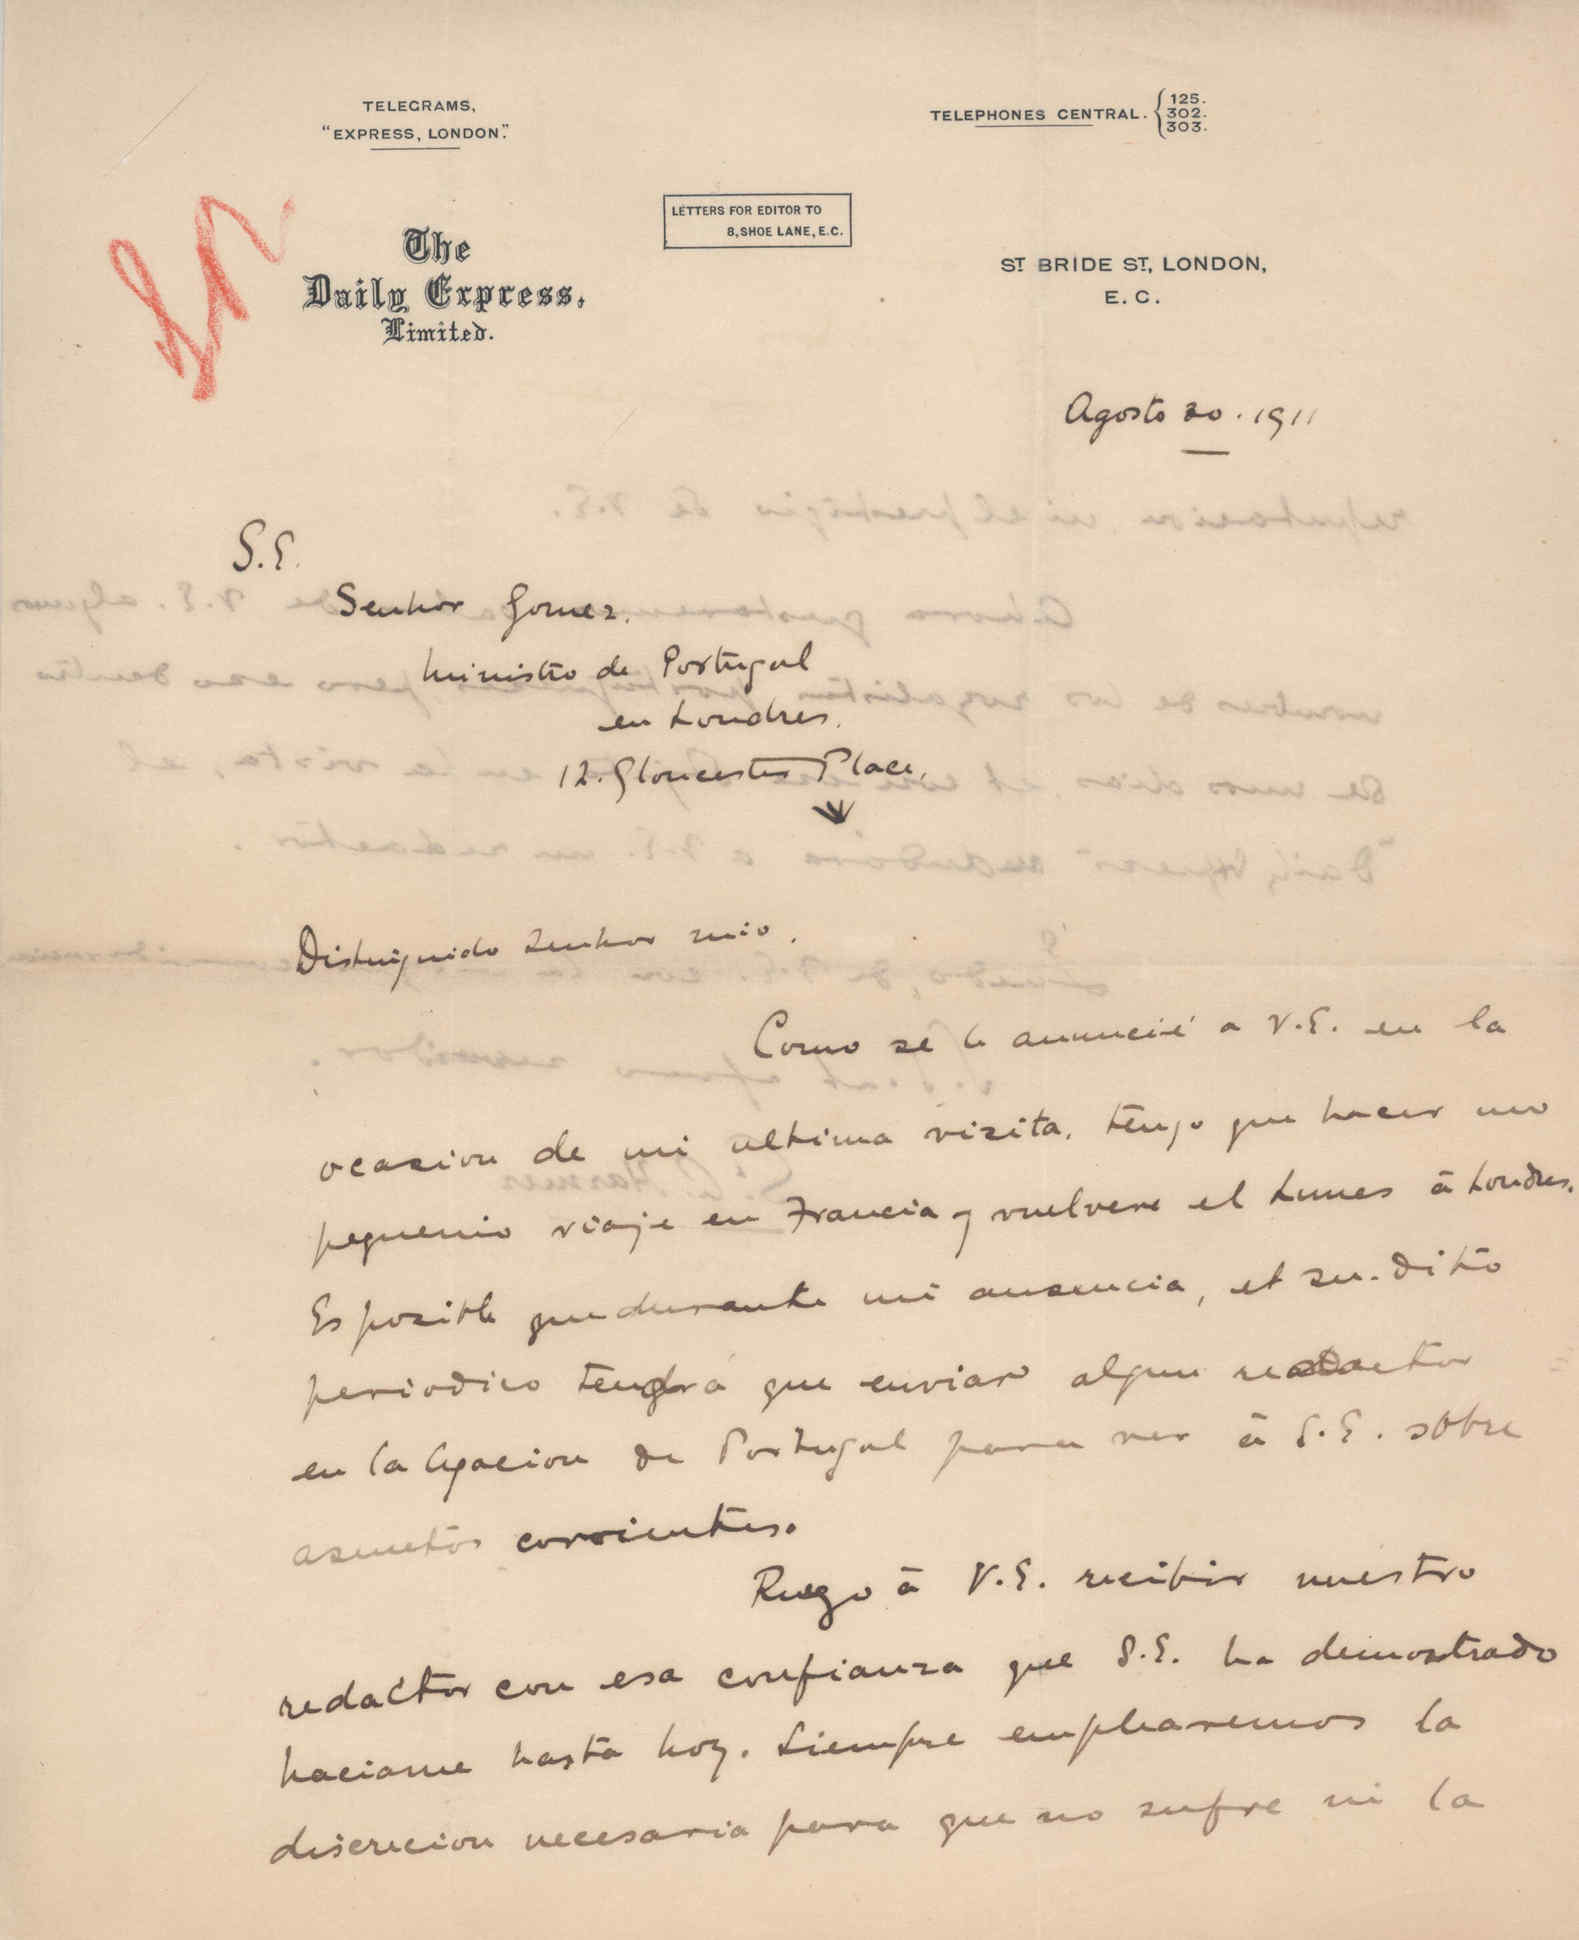 TELEGRAMS,
"EXPRESS, LONDON."
TELEPHONES CENTRAL. 125.
302.
303.
LETTERS FOR EDITOR TO
8, SHOE LANE, E.C.
The
Daily Express,
Limited.
ST BRIDE ST, LONDON,
E.C.
Agosto 30. 1911
S.E.
Senhor Gomez.
Ministro de Portugal
en Londres.
12. Gloucester Place.
Distinguido Senhor mio.
Como se le anuncié a V.E. en la
ocasion de mi ultima visita. tengo que hacer uno
pequenio viaje en Francia y vuelvere el Lunes á Londres.
Es posible que durante mi ausencia, et su. dito
periodico tendra que enviar algun redactor
en la legacion de Portugal para ver á S.E. sobre
asuntos corrientes.
Ruego á V.E. recibir nuestro
redactor con esa confianza que S.E. ha demostrado
haciame hasta hoy. Siempre emplearemos la
discrecion necesaria para que no sufre ni la